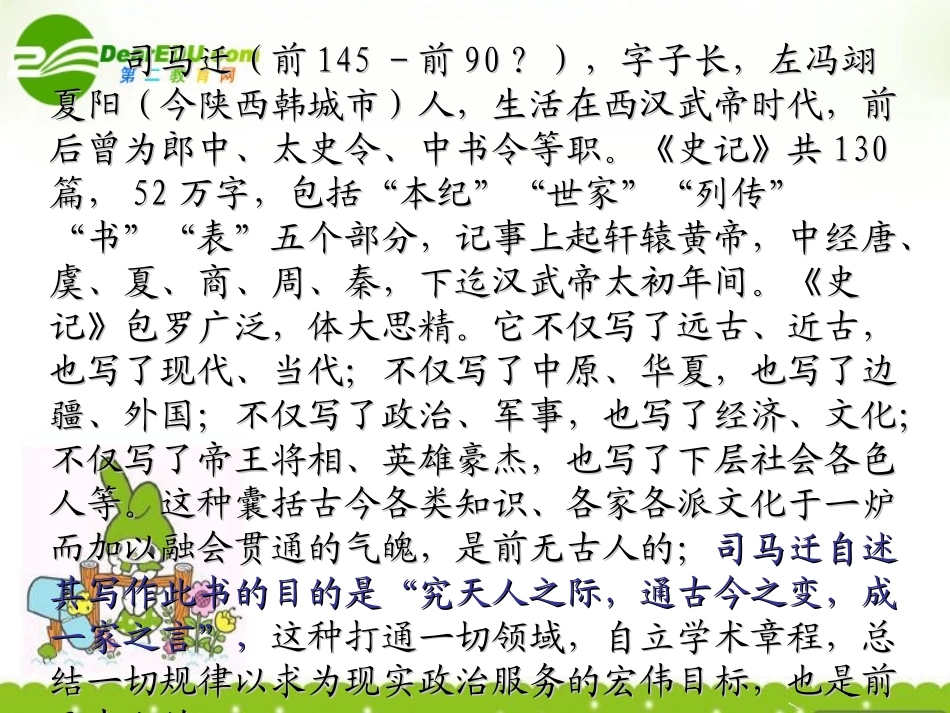 DearEDU.com
第二教育网
司马迁（前 145 －前 90 ？），字子长，左冯翊
夏阳（今陕西韩城市）人，生活在西汉武帝时代，前
后曾为郎中、太史令、中书令等职。《史记》共 130
篇， 52 万字，包括“本纪” “世家” “列传”
“书” “表”五个部分，记事上起轩辕黄帝，中经唐、
虞、夏、商、周、秦，下迄汉武帝太初年间。《史
记》包罗广泛，体大思精。它不仅写了远古、近古，
也写了现代、当代；不仅写了中原、华夏，也写了边
疆、外国；不仅写了政治、军事，也写了经济、文化；
不仅写了帝王将相、英雄豪杰，也写了下层社会各色
人等。这种囊括古今各类知识、各家各派文化于一炉
而加以融会贯通的气魄，是前无古人的；司马迁自述
其写作此书的目的是“究天人之际，通古今之变，成
一家之言”，这种打通一切领域，自立学术章程，总
结一切规律以求为现实政治服务的宏伟目标，也是前